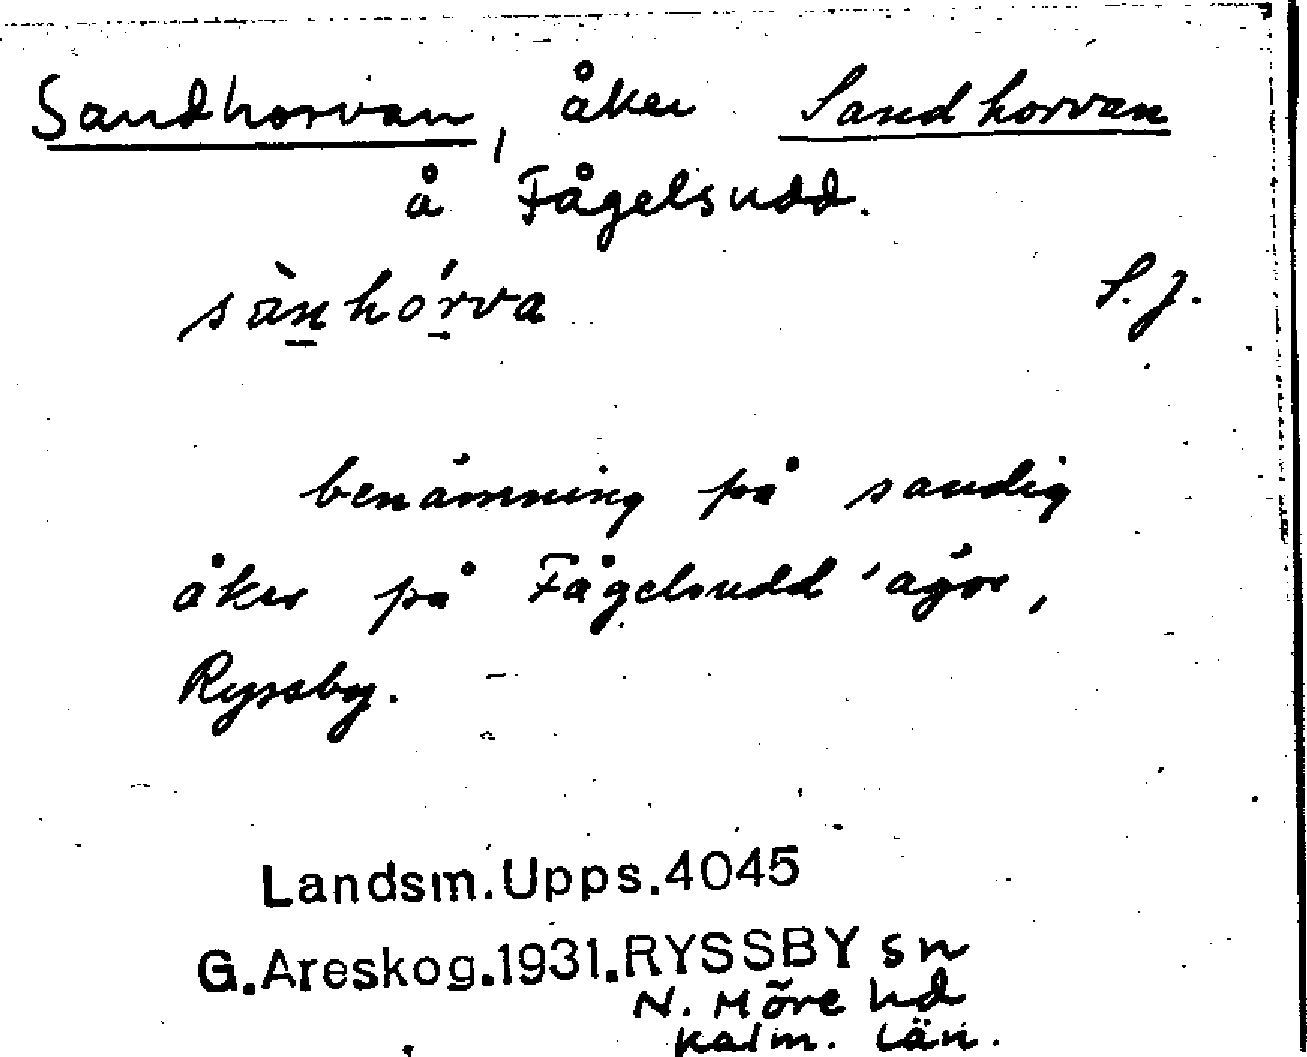 Sandhorvan, åker Sandhorvan
å Fågelsudd.
sànhórva S.J.
benämning på sandig
åker på Fågelsudd 'ägor,
Ryssby.
Landsm.Upps.4045
G.Areskog.1931.RYSSBY sn
N. Möre hd
Kalm. län.